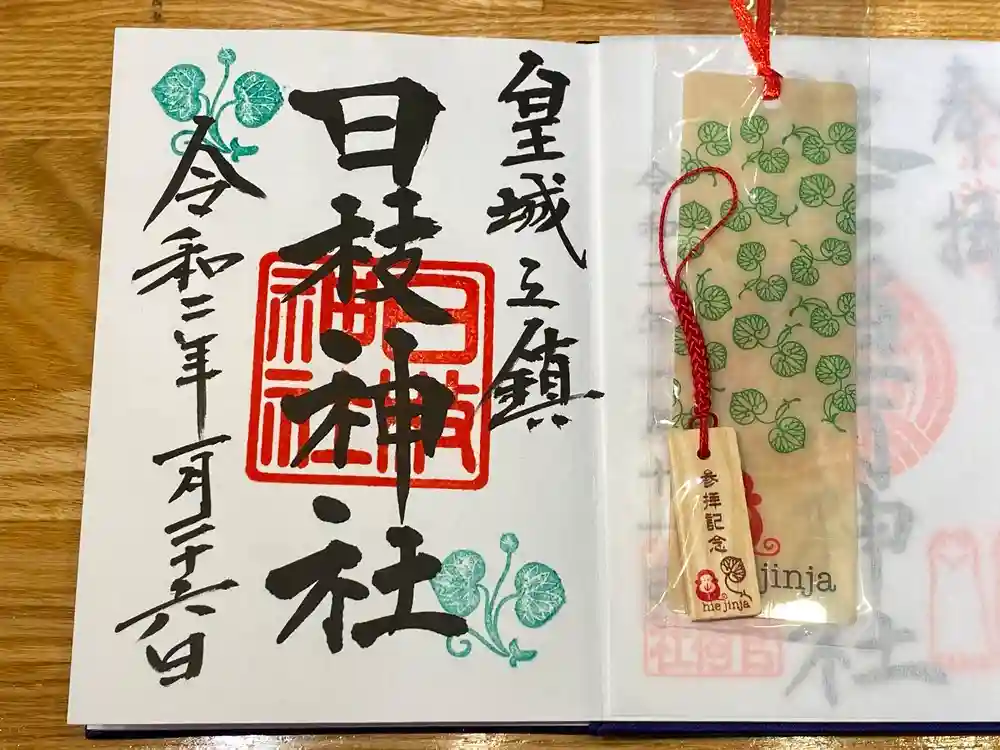 皇城之鎮
日枝神社
日枝神社
令和二年一月二十六日
参拝記念
hie jinja
jinja